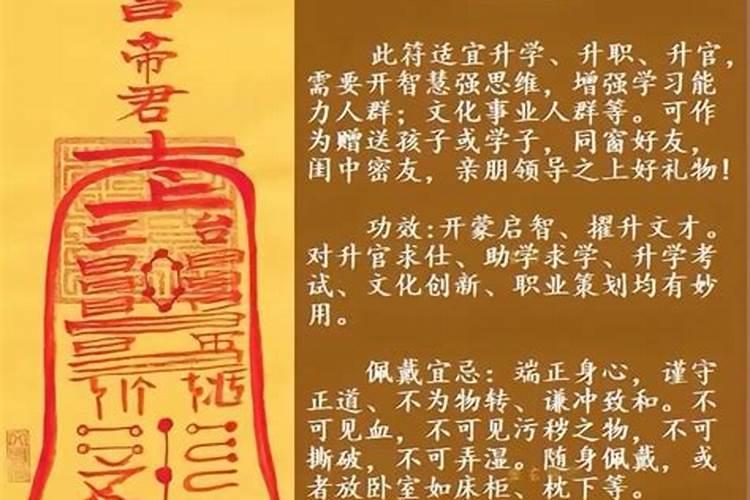 昌
帝
君
三台
此符适宜升学、升职、升官，
需要开智慧强思维，增强学习能
力人群；文化事业人群等。可作
为赠送孩子或学子，同窗好友，
闺中密友，亲朋领导之上好礼物！
功效:开蒙启智、擢升文才。
对升官求仕、助学求学、升学考
试、文化创新、职业策划均有妙
用。
佩戴宜忌：端正身心，谨守
正道、不为物转、谦冲致和。不
可见血，不可见污秽之物，不可
撕破，不可弄湿。随身佩戴，或
者放卧室如床柜、枕下等。